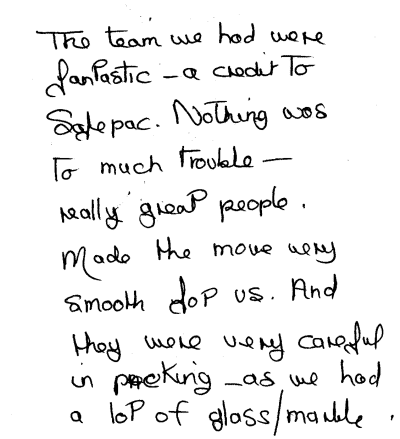 The team we had were
fantastic - a credit To
Safepac. Nothing was
To much trouble -
really great people.
Made the move very
smooth for us. And
they were very careful
in packing - as we had
a lot of glass/marble.